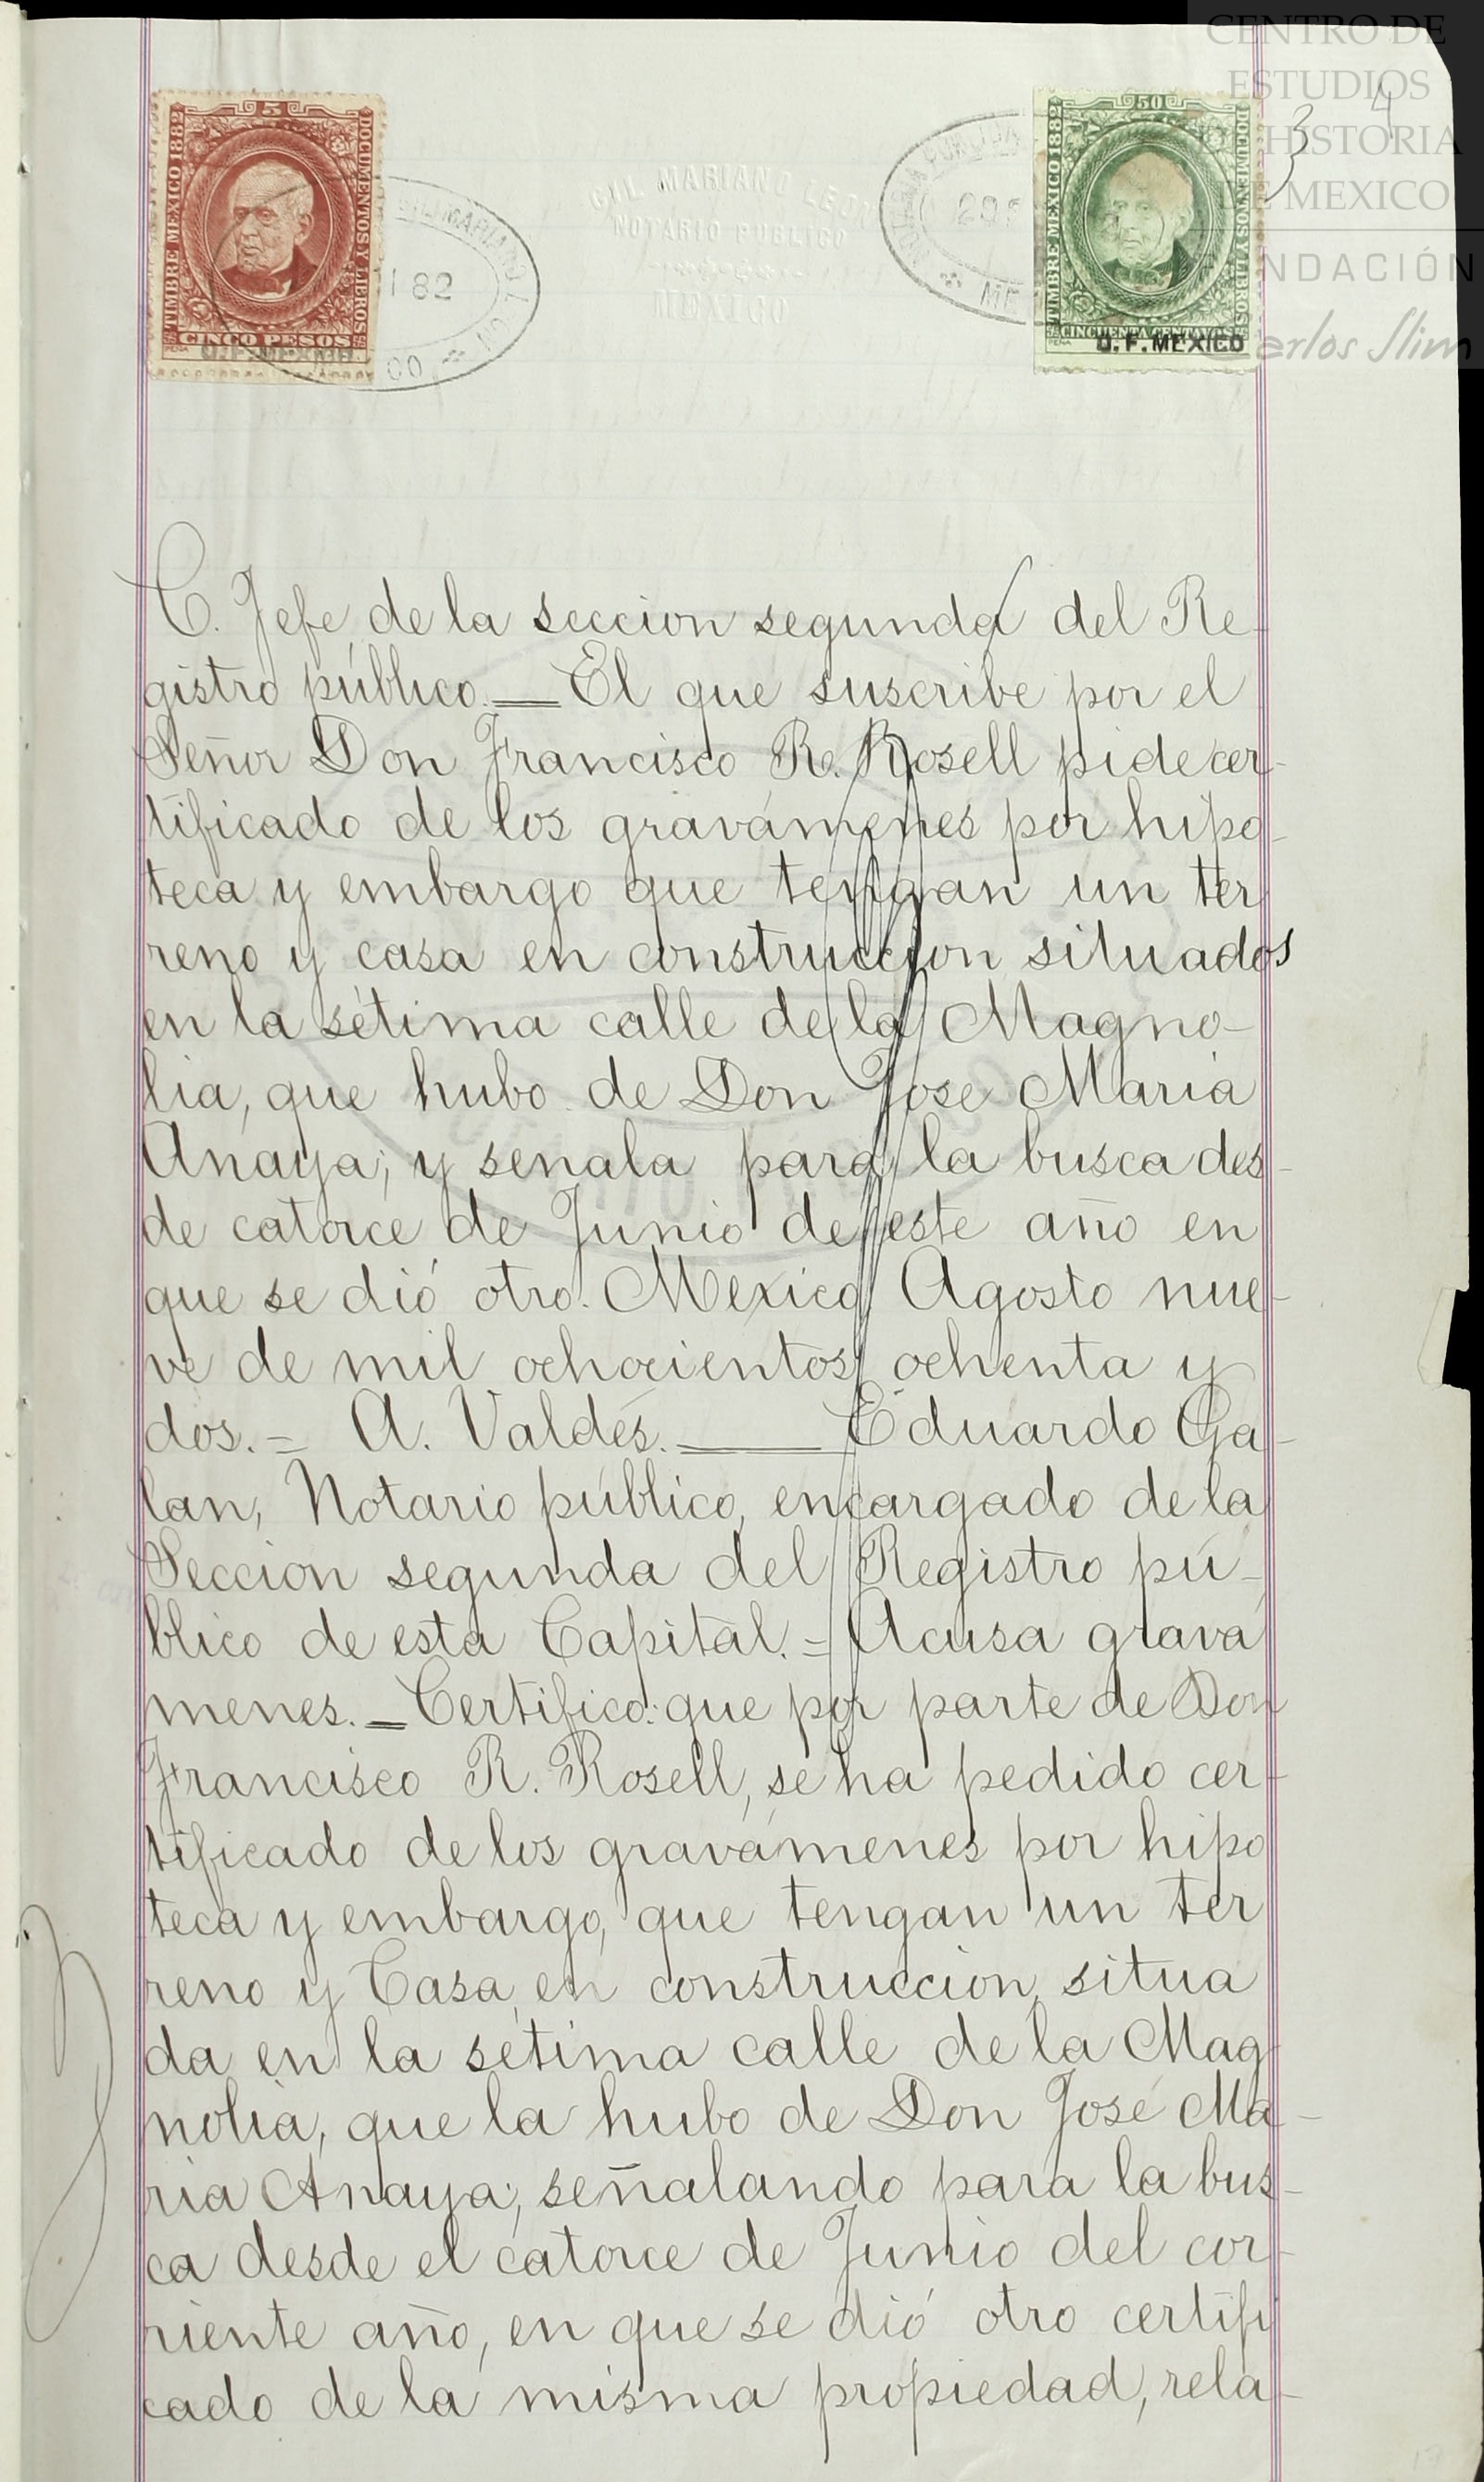 CENTRO DE
ESTUDIOS
HISTORIA
DE MEXICO
NDACIÓN
Carlos Slim
3 4
5
TIMBRE MEXICO 1882
DOCUMENTOS Y LIBROS
CINCO PESOS
PEÑA
82
GIL MARIANO LEON
NOTARIO PUBLICO
MEXICO
50
TIMBRE MEXICO 1882
DOCUMENTOS Y LIBROS
CINCUENTA CENTAVOS
PEÑA
D.F. MEXICO
C. Jefe de la seccion segunda del Re-
gistro público.— El que suscribe por el
Señor Don Francisco R. Rosell pide cer-
tificado de los gravámenes por hipo-
teca y embargo que tengan un ter
reno y casa en construccion situados
en la sétima calle de la Magno-
lia, que hubo de Don Jose Maria
Anaya; y senala para la busca des-
de catorce de Junio de este año en
que se dió otro. Mexico Agosto nue-
ve de mil ochocientos ochenta y
dos.= A. Valdés.— Eduardo Ga-
lan, Notario público, encargado de la
Seccion segunda del Registro pú-
blico de esta Capital.= Acusa gravá
menes.— Certifico: que por parte de Don
Francisco R. Rosell, se ha pedido cer-
tificado de los gravámenes por hipo
teca y embargo, que tengan un ter
reno y Casa, en construccion, situa
da en la sétima calle de la Mag-
nolia, que la hubo de Don José Ma-
ria Anaya; señalando para la bus-
ca desde el catorce de Junio del cor-
riente año, en que se dió otro certifi
cado de la misma propiedad, rela-